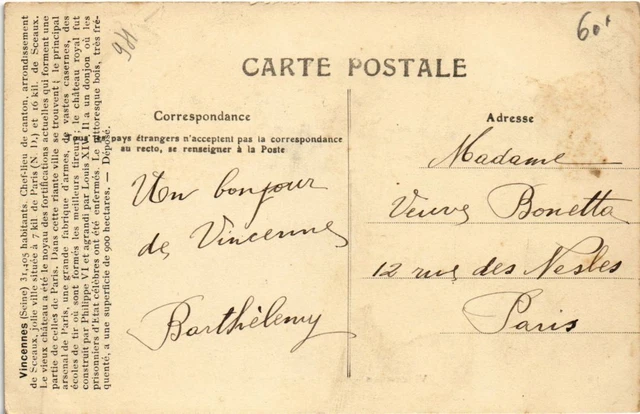 94.-
60f
CARTE POSTALE
Correspondance
Tous les pays étrangers n'acceptent pas la correspondance
au recto, se renseigner à la Poste
Un bonjour
de Vincennes
Barthélemy
Adresse
Madame
Veuve Bonetta
12 rue des Nesles
Paris
Vincennes (Seine) 31,495 habitants. Chef-lieu de canton, arrondissement
de Sceaux, jolie ville située à 7 kil. de Paris (N. D.) et 16 kil. de Sceaux.
Le vieux château a été le noyau des fortifications actuelles qui forment une
partie de celles de Paris. Dans cette riante ville se trouvent : le principal
arsenal de Paris, une grande fabrique d'armes, de vastes casernes, des
écoles de tir où sont formés les meilleurs tireurs ; le château royal fut
construit par Philippe VI et agrandi par Louis XI. Il a un donjon où les
prisonniers d'Etat célèbres ont été enfermés. Le pittoresque bois, très fré-
quenté, a une superficie de 900 hectares. — Déposé.